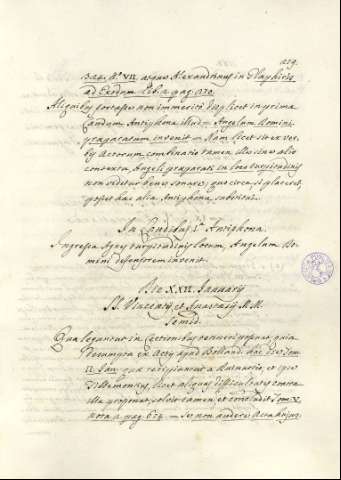 219.
324. N.º VII. atque Alexandrinus in Glaphiris
ad Exodum Lib. 2. pag. 270.
Aliquibus fortasse non immerito displicet in prima
Laudum Antiphona illud — Angelum Domini
præparatum invenit — Nam licet sit ex ver
bis Actorum combinatio tamen illius cum aliis
contexta Angeli præparati in loco turpitudinis
non videtur bene sonare, quocirca, si placeret,
posset hæc alia Antiphona substitui.
In Laudibus 1.ª Antiphona.
Ingressa Agnes turpitudinis locum, Angelum Do
mini defensorem invenit.
Die XXII. Januarii
SS. Vincentii et Anastasii M.M.
Semid.
Quæ leguntur in Lectionibus retineri possunt, quia
decumpta ex Actis apud Bolland. hac die Tom.
II. Jan. quæ recipiuntur a Ruinartio, et ipse
Tillemontius, licet aliquas difficultates contra
illa proponat, solvit tamen, et concludit Tom. V.
Nota 2. pag. 674. — Je non andere